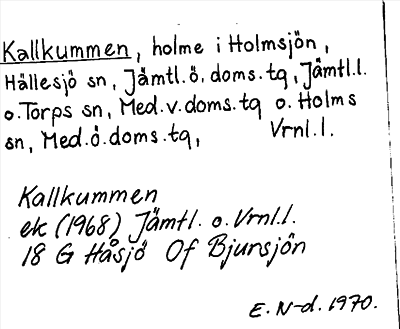 Kallkummen, holme i Holmsjön,
Hällesjö sn, Jämtl.ö.doms.tg, Jämtl.l.
o.Torps sn, Med.v.doms.tg o. Holms
sn, Med.ö.doms.tg, Vrnl.l.
Kallkummen
ek (1968) Jämtl. o. Vrnl.l.
18 G Håsjö Of Bjursjön
E. N-d. 1970.